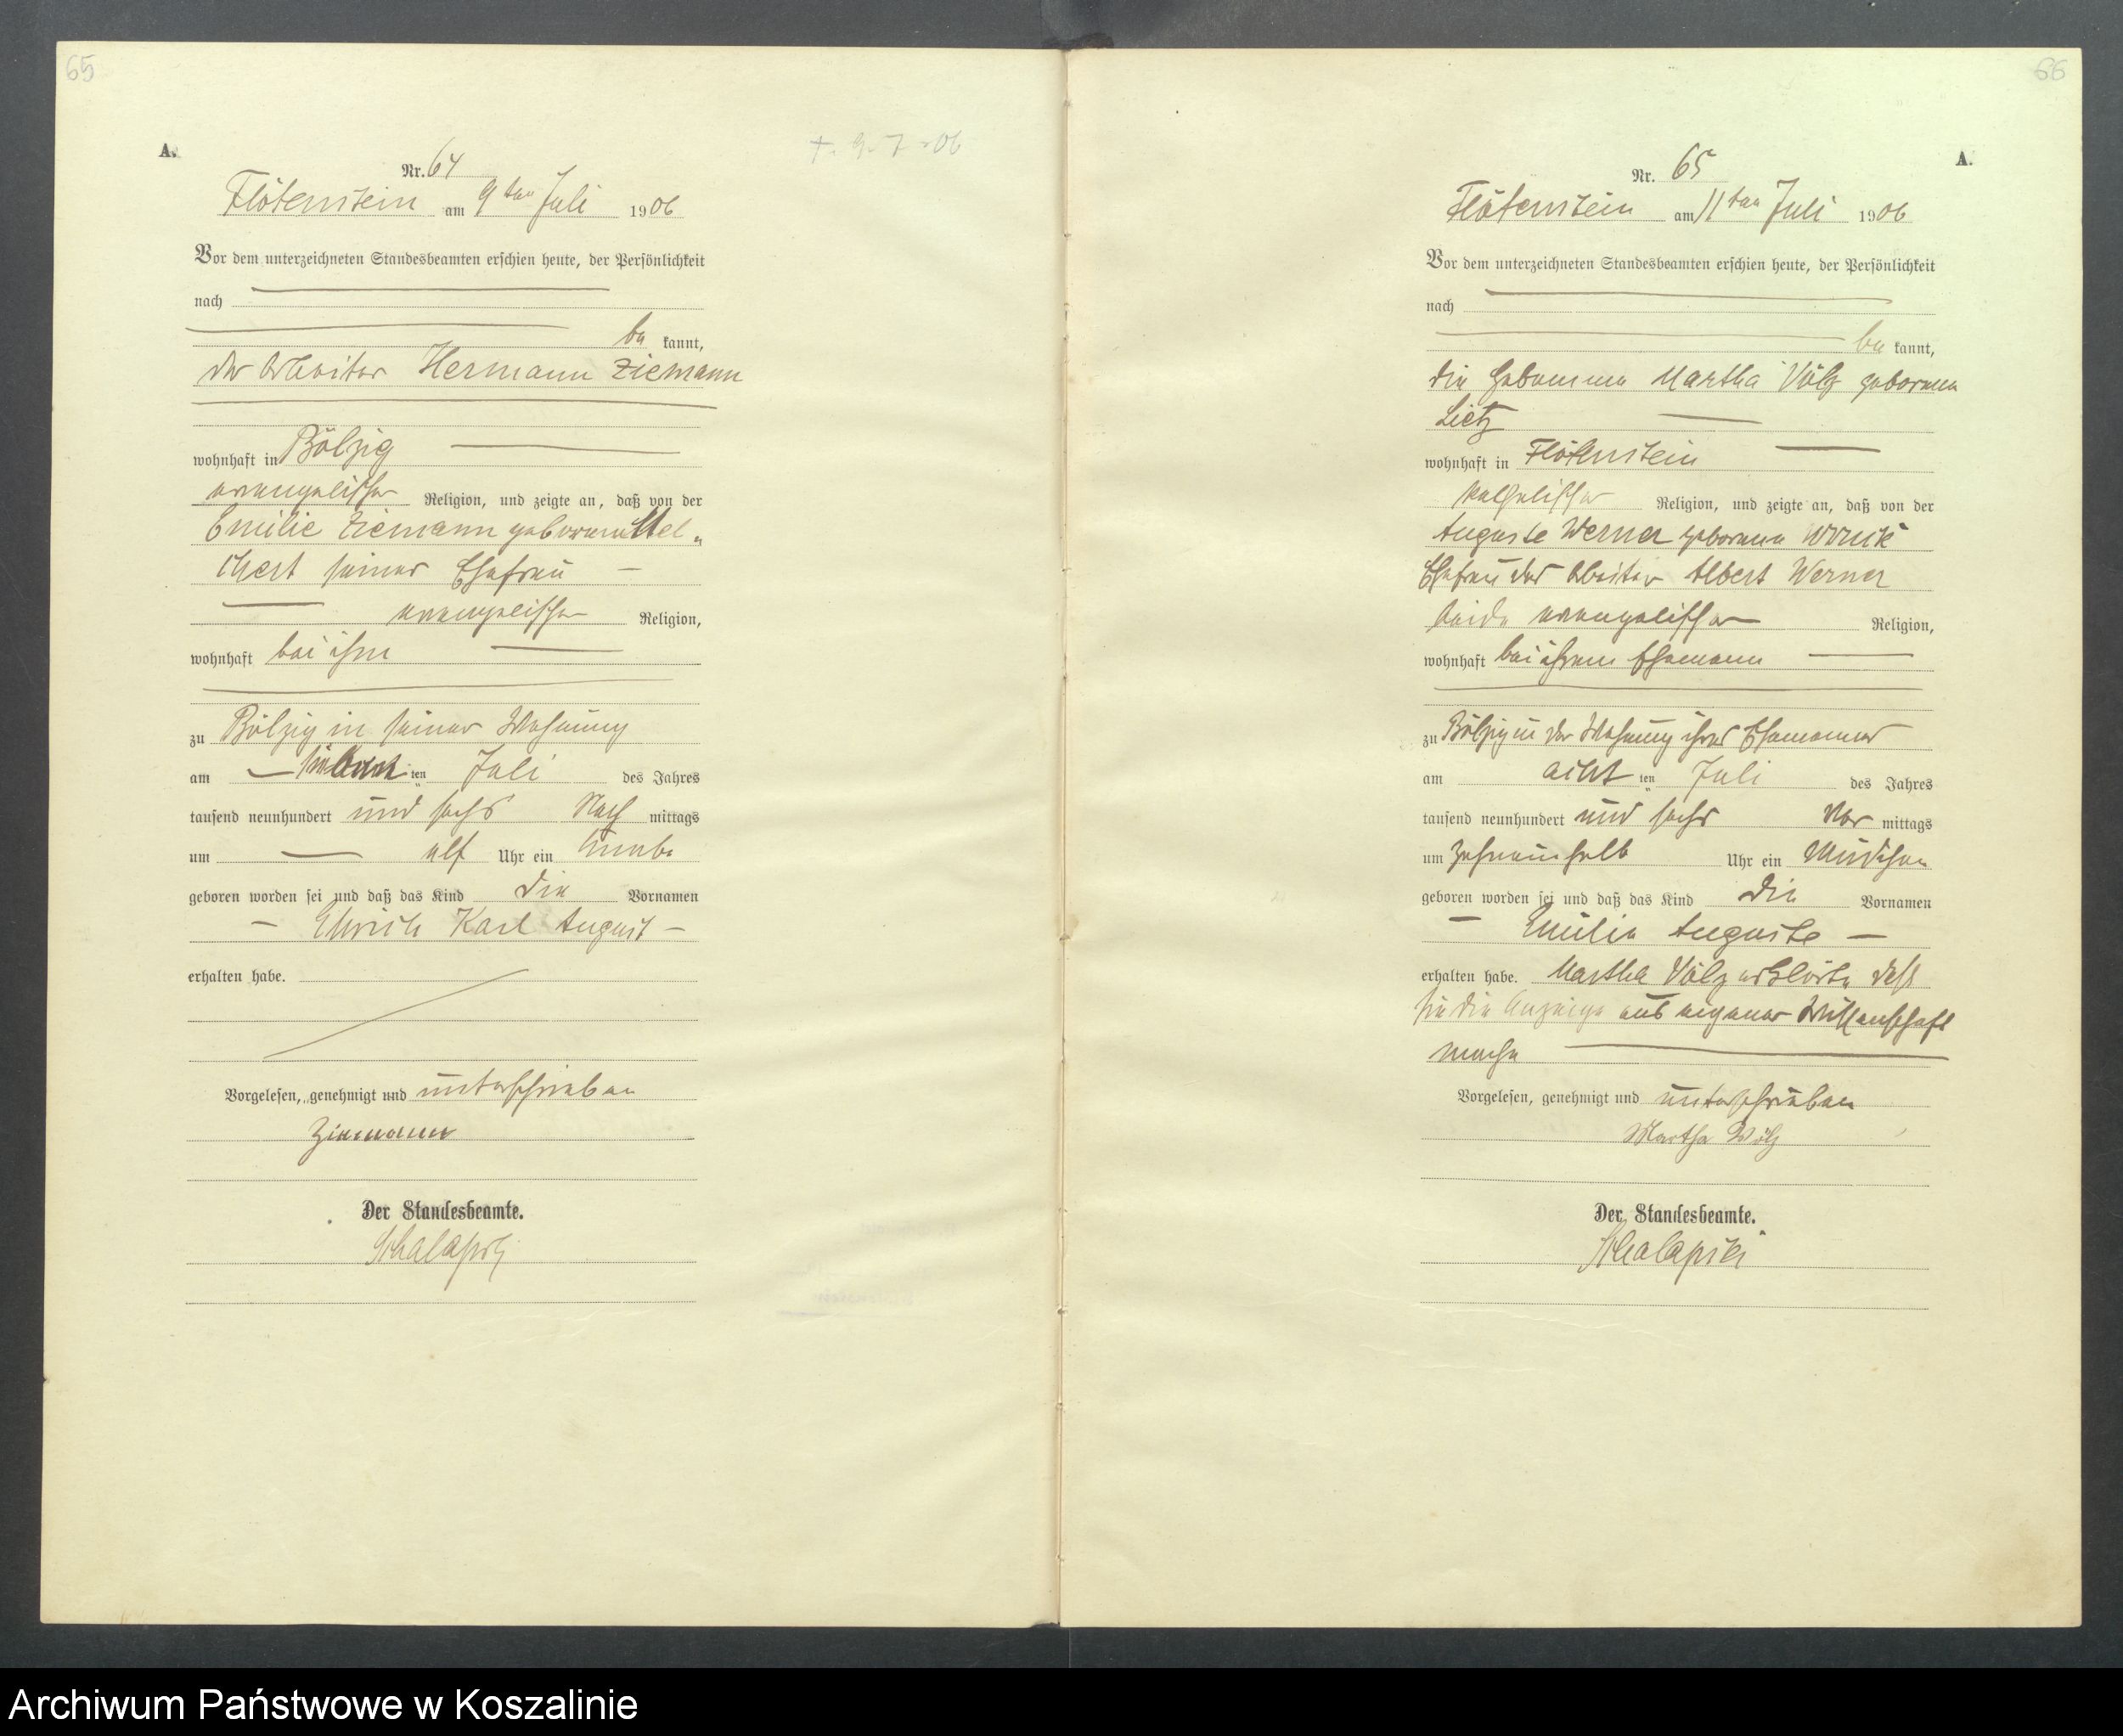 65
A.
+. 9. 7. 06
Nr. 64
Flötenstein am 9ten Juli 1906
Vor dem unterzeichneten Standesbeamten erschien heute, der Persönlichkeit
nach
be kannt,
der Arbeiter Hermann Ziemann
wohnhaft in Bölzig
evangelischer Religion, und zeigte an, daß von der
Emilie Ziemann geborene
seiner Ehefrau
evangelischer Religion,
wohnhaft bei ihm
zu Bölzig in seiner Wohnung
am sieben ten Juli des Jahres
tausend neunhundert und sechs Nach mittags
um elf Uhr ein Knabe
geboren worden sei und daß das Kind die Vornamen
Karl August
erhalten habe.
Vorgelesen, genehmigt und unterschrieben
Ziemann
Der Standesbeamte.
66
A.
Nr. 65
Flötenstein am 11ten Juli 1906
Vor dem unterzeichneten Standesbeamten erschien heute, der Persönlichkeit
nach
be kannt,
die Hebamme Martha Völz geborene
Lietz
wohnhaft in Flötenstein
katholischer Religion, und zeigte an, daß von der
Auguste Werner geborene
Ehefrau des Arbeiter Albert Werner
beide evangelischer Religion,
wohnhaft bei ihrem Ehemann
zu Bölzig in der Wohnung ihres Ehemannes
am acht ten Juli des Jahres
tausend neunhundert und sechs Vor mittags
um zehneinhalb Uhr ein Mädchen
geboren worden sei und daß das Kind die Vornamen
Emilie Auguste
erhalten habe. Martha Völz erklärte daß
sie die Anzeige aus eigener Wissenschaft
mache
Vorgelesen, genehmigt und unterschrieben
Martha Völz
Der Standesbeamte.
Archiwum Państwowe w Koszalinie